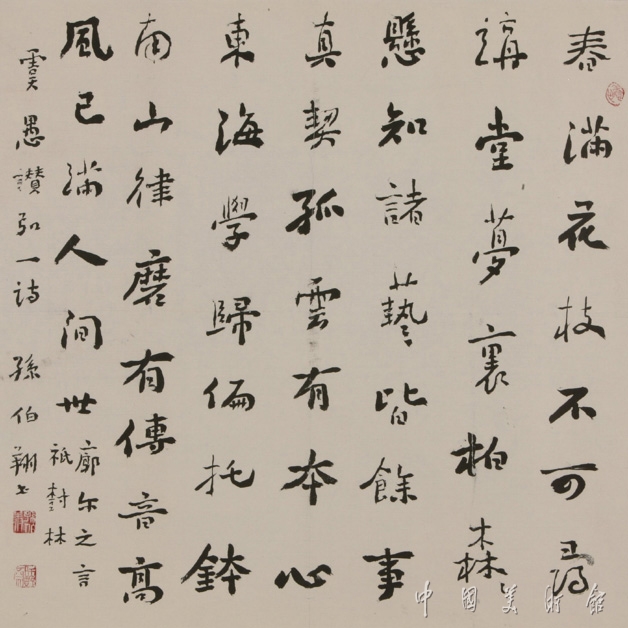 春滿花枝不可尋
講堂夢裏柏森森
懸知諸藝皆餘事
真契孤雲有本心
東海學歸偏托鉢
南山律有傳音高
風已滿人間世
廓尔之言
祇樹林
虞愚讚弘一诗 孫伯翔书
中國美術館